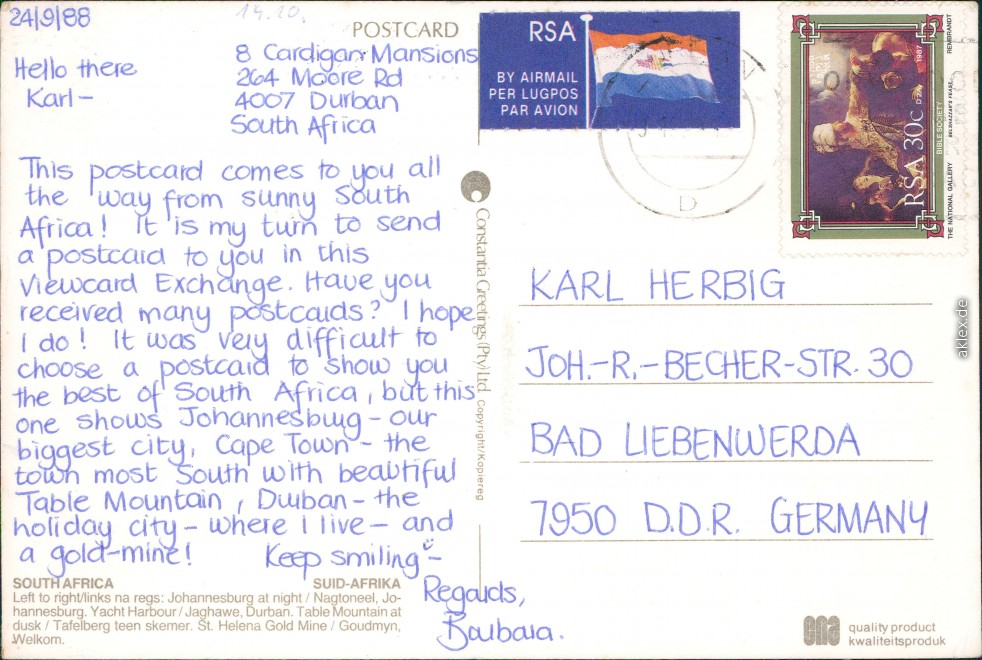 24/9/88
14.10.
POSTCARD
Hello there
Karl -
8 Cardigan Mansions
264 Moore Rd
4007 Durban
South Africa
This postcard comes to you all
the way from sunny South
Africa! It is my turn to send
a postcard to you in this
Viewcard Exchange. Have you
received many postcards? I hope
I do! It was very difficult to
choose a postcard to show you
the best of South Africa, but this
one shows Johannesburg - our
biggest city, Cape Town - the
town most South with beautiful
Table Mountain, Durban - the
holiday city - where I live - and
a gold-mine! Keep smiling -
Regards,
Barbara.
SOUTH AFRICA SUID-AFRIKA
Left to right/links na regs: Johannesburg at night / Nagtoneel, Jo-
hannesburg. Yacht Harbour / Jaghawe, Durban. Table Mountain at
dusk / Tafelberg teen skemer. St. Helena Gold Mine / Goudmyn,
Welkom.
Constantia Greetings (Pty) Ltd. Copyright/Kopiereg
RSA
BY AIRMAIL
PER LUGPOS
PAR AVION
D
RSA 30c
BIBLE SOCIETY
THE NATIONAL GALLERY BELSHAZZAR'S FEAST REMBRANDT
1987
KARL HERBIG
JOH.-R.-BECHER-STR. 30
BAD LIEBENWERDA
7950 D.D.R. GERMANY
ena quality product
kwaliteitsproduk
aklex.de